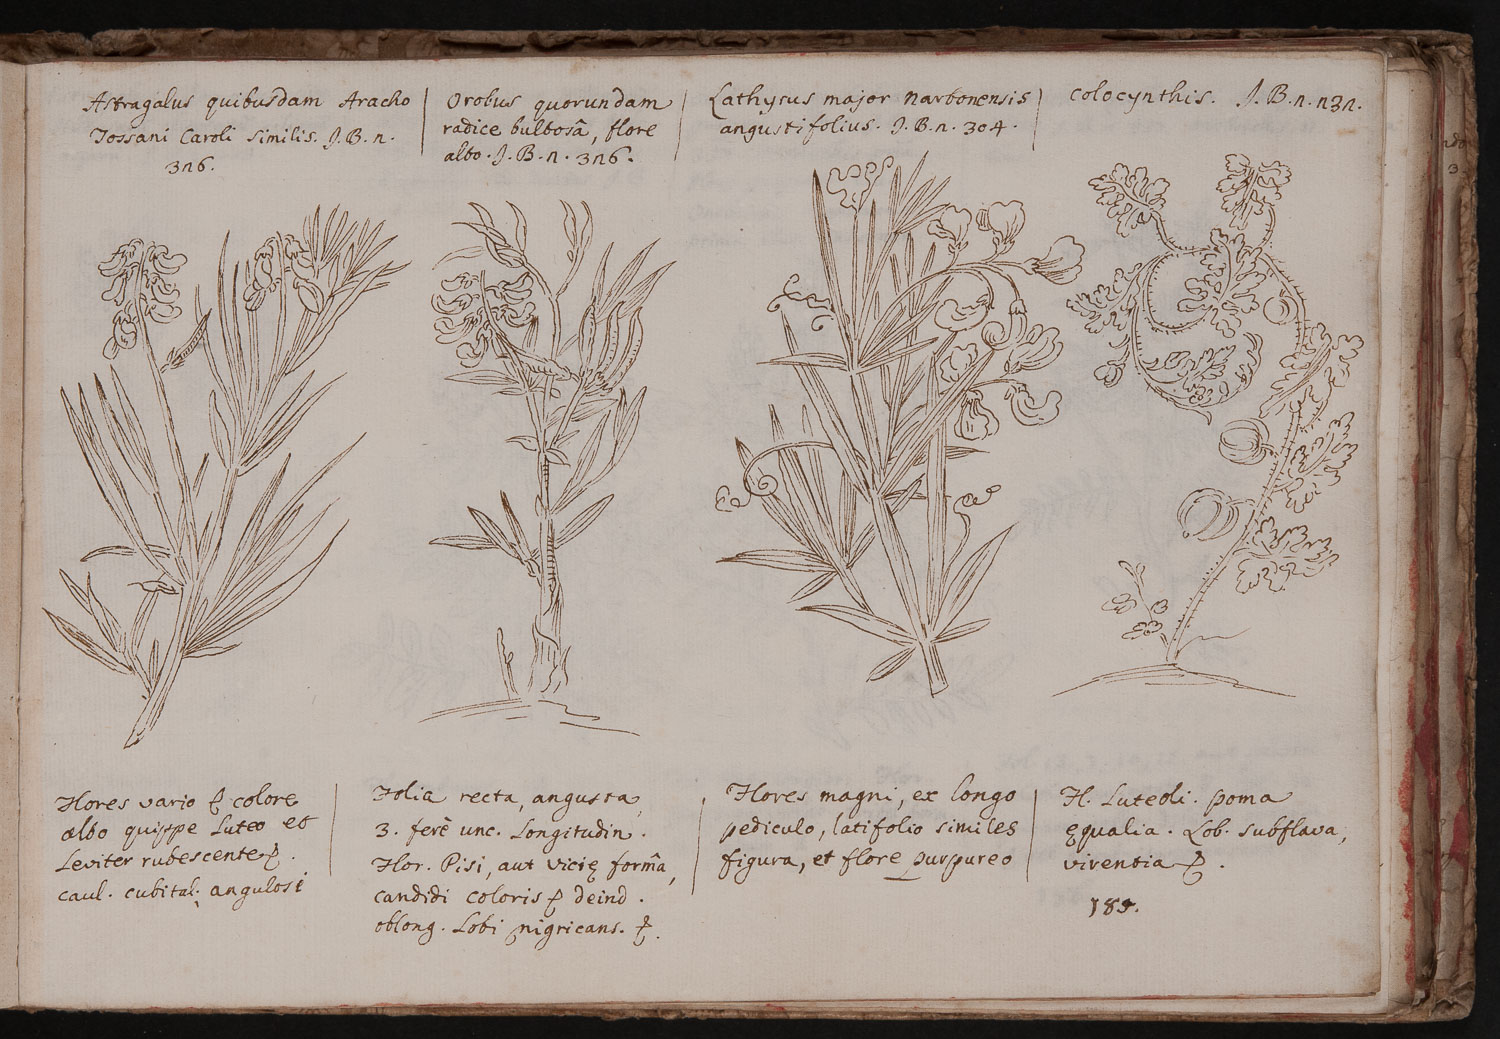 Astragalus quibusdam Aracho
Tossani Caroli similis. J. B. n.
326.
Orobus quorundam
radice bulbosâ, flore
albo. J. B. n. 326.
Lathyrus major narbonensis
angustifolius. J. B. n. 304.
colocynthis. J. B. n. 232.
Flores vario & colore
albo quippe Luteo et
Leviter rubescente &.
caul. cubital. angulosi
Folia recta, angusta,
3. ferè unc. Longitudin.
Flor. Pisi, aut vicię formâ,
candidi coloris & deind.
oblong. Lobi nigricans. &.
Flores magni, ex longo
pediculo, latifolio similes
figura, et flore purpureo
Fl. Luteoli. poma
ęqualia. Lob. subflava,
virentia &.